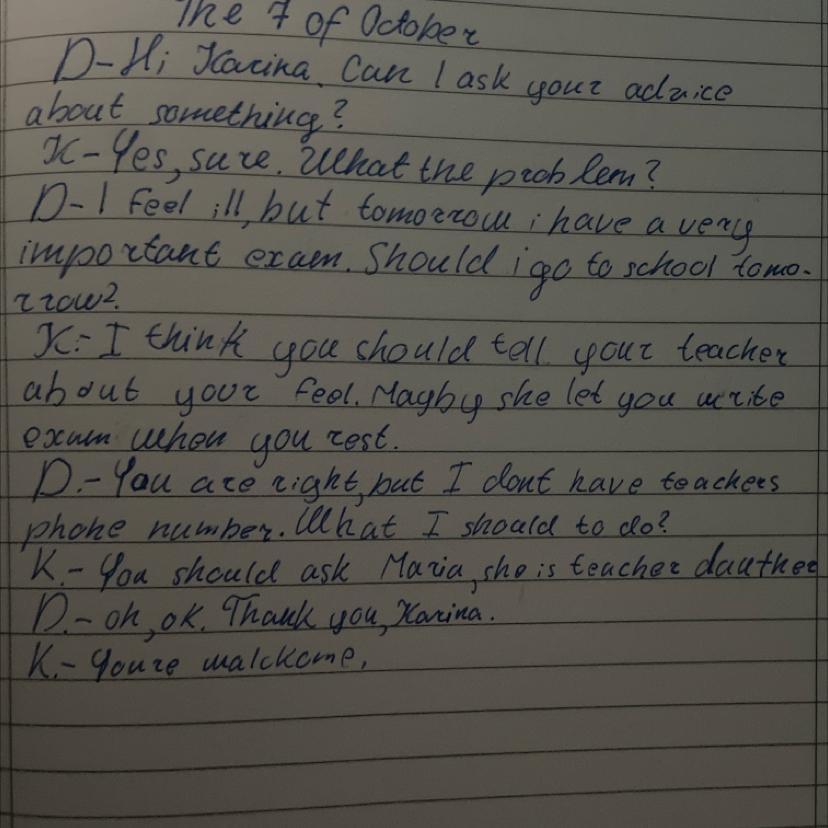 The 7 of October
D-Hi Karina. Can I ask your advice
about something?
K-Yes, sure. What the problem?
D-I feel ill, but tomorrow i have a very
important exam. Should i go to school tomo-
rrow?
K.-I think you should tell your teacher
about your feel. Mayby she let you write
exam when you rest.
D.-You are right, but I dont have teachers
phone number. What I should to do?
K.-You should ask Maria, she is teacher dauther
D.-oh, ok. Thank you, Karina.
K.-Youre walckome.